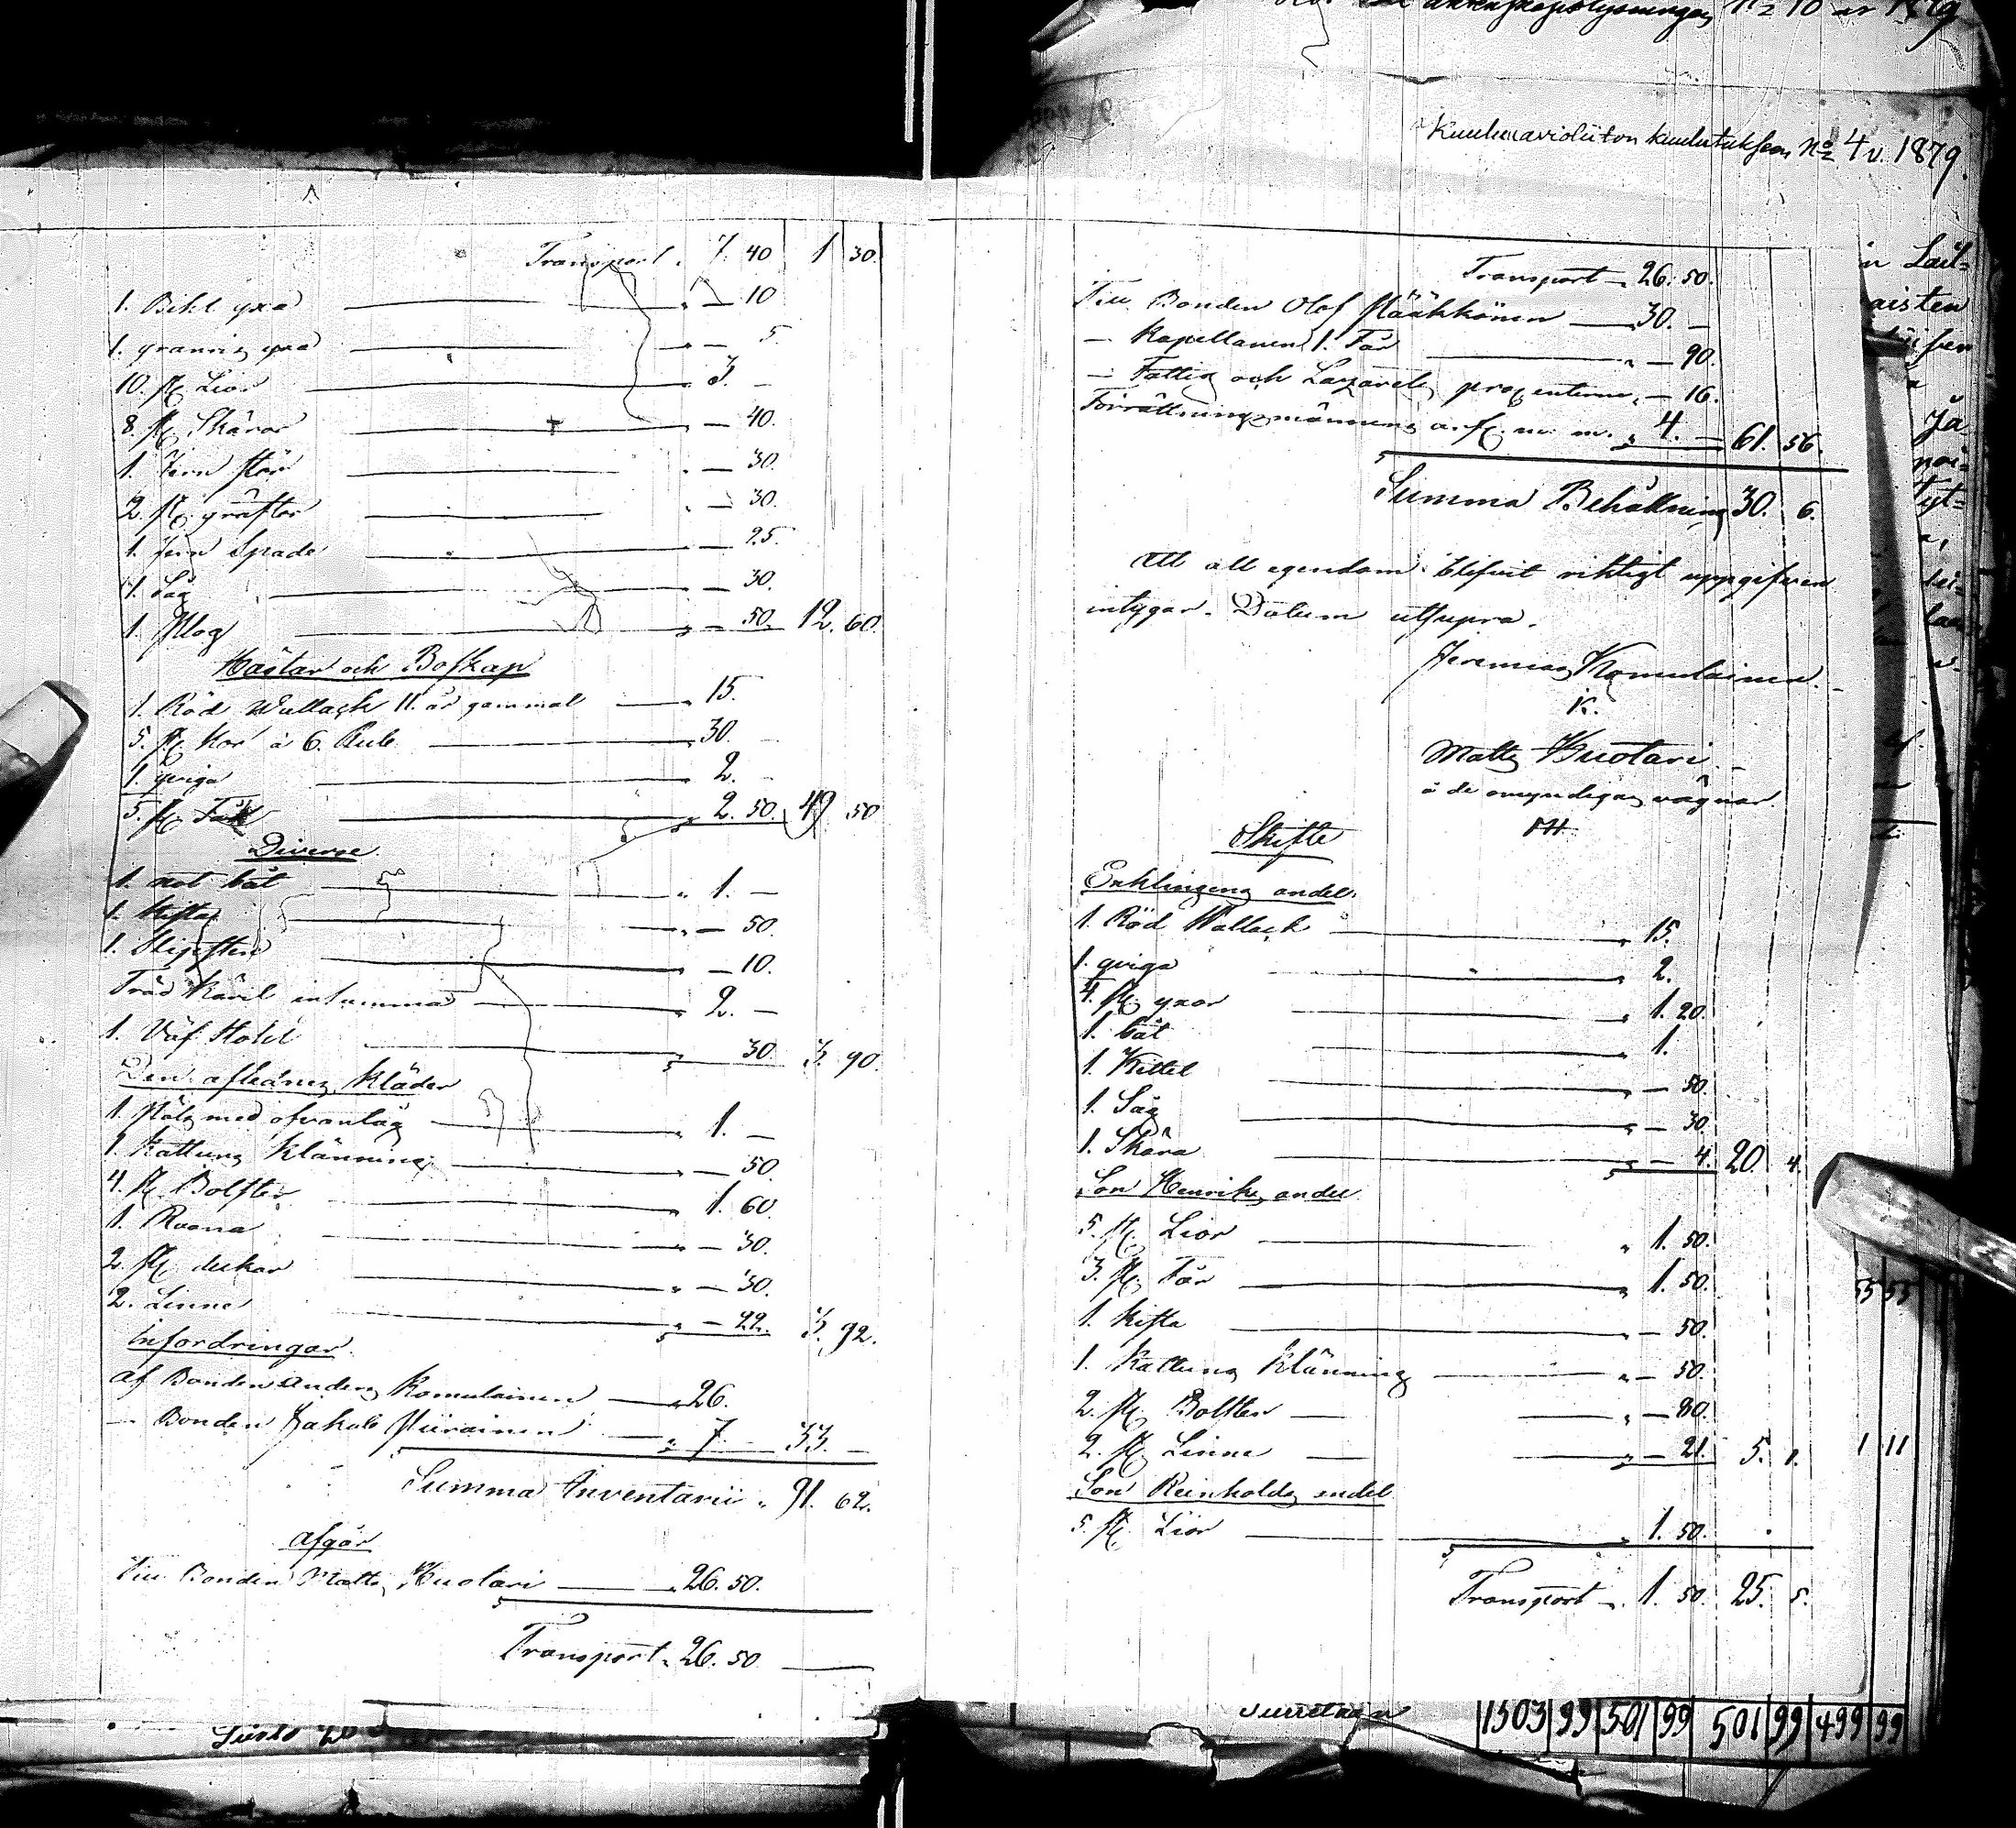 Transport „ 7. 40 1 30.
1. Bihl yxa „ — 10
1. yxa „ — 5
10. st. Lior „ 3. —
8. st. Skäror „ — 40.
1. Jern stör „ — 30.
2. st. gräftor „ — 30.
1. Jern Spade „ — 25.
1. Såg „ — 30.
1. Plog „ — 50. 12. 60.
Hästar och Boskap
1. Röd Wallack 11. år gammal „ 15.
5. st. Kor à 6. Rub. „ 30. —
1. qviga „ 2. —
5. st. Får „ 2. 50. 49. 50
Diverse
1. not båt „ 1. —
1. Kista „ — 50.
1. Slipsten „ — 10.
Träd Käril in summa „ 2. —
1. Väf Stohl „ 30. 3. 90.
Den aflednes Kläder
1. Päls med ofvantåg „ 1. —
1. Kattuns Klänning „ — 50.
4. st. Bolster „ 1. 60.
1. Roana „ — 30.
2. st. dukar „ — 30.
2. Linne „ — 22. 3. 92.
Infordringar
af Bonden Anders Komulainen „ 26.
— Bonden Jakob Piirainen „ 7. — 33. —
Summa Inventarii „ 91. 62.
Afgår
Till Bonden Matts Huotari „ 26. 50.
Transport „ 26. 50
N:o 10 år 1879
Kuuluavioliiton kuulutuksen N:o 4 v. 1879.
Transport „ 26. 50.
Till Bonden Olof Pääkkönen „ 30. —
— Kapellanen 1. Får „ — 90.
— Fattig och Lazaretts prozenterne „ — 16.
Förrättningsmännens a. st. m. m. „ 4. — 61. 56.
Summa Behållning 30. 6.
Att all egendom blifvit riktigt uppgifven
intygar. Datum utsupra.
Jeremias Komulainen.
K.
Matts Huotari.
å de omyndigas vägnar.
HH.
Skifte
Enklingens andel.
1. Röd Wallack „ 15.
1. qviga „ 2.
4. st. yxor „ 1. 20.
1. båt „ 1.
1. Kittel „ — 50.
1. Såg „ — 30
1. Skära „ — 4. 20. 4.
Son Henriks andel.
5. st. Lior „ 1. 50.
3. st. Får „ 1. 50.
1. Kista „ — 50.
1. Kattuns Klänning „ — 50.
2. st. Bolster „ — 80.
2. st. Linne „ — 21. 5. 1.
Son Reinholds andel
5. st. Lior „ 1. 50.
Transport „ 1. 50 25. 5.
55 55
1 11
1503 99 501 99 501 99 499 99